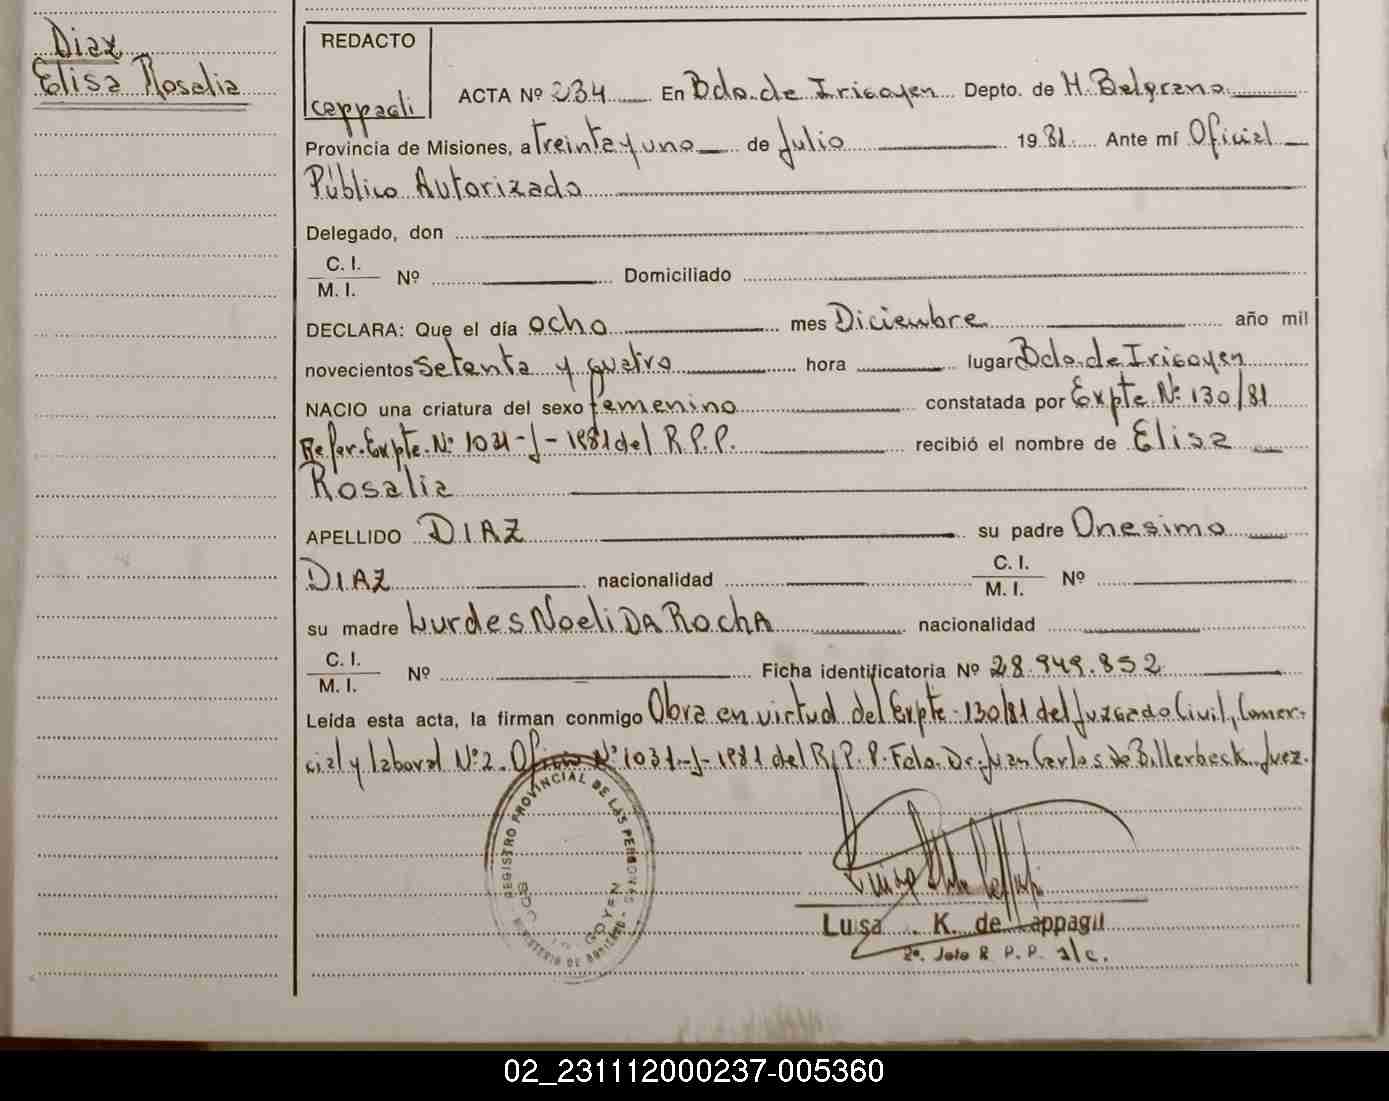 Diaz
Elisa Rosalia
REDACTO
Cappagli
ACTA Nº 234 En Bdo. de Irigoyen Depto. de H. Belgrano
Provincia de Misiones, a treinta y uno de Julio 1981. Ante mí Oficial
Público Autorizado
Delegado, don
C. I.
M. I. Nº Domiciliado
DECLARA: Que el día ocho mes Diciembre año mil
novecientos setenta y quatro hora lugar Bdo. de Irigoyen
NACIO una criatura del sexo femenino constatada por Expte. Nº 130/81
Refer. Expte. Nº 1031-J-1981 del R.P.P. recibió el nombre de Elisa
Rosalia
APELLIDO DIAZ su padre Onesimo
DIAZ nacionalidad C. I. M. I. Nº
su madre Lurdes Noeli DA RochA nacionalidad
C. I.
M. I. Nº Ficha identificatoria Nº 28.949.852
Leída esta acta, la firman conmigo Obra en virtud del Expte. 130/81 del Juzgado Civil, Comer-
cial y laboral Nº 2. Oficio Nº 1031-J-1981 del R.P.P. Fdo. Dr. Juan Carlos de Billerbeck. Juez.
REGISTRO PROVINCIAL DE LAS PERSONAS
MINISTERIO DE GOBIERNO
Luisa K. de Cappagli
2º. Jefe R. P. P. a/c.
02_231112000237-005360